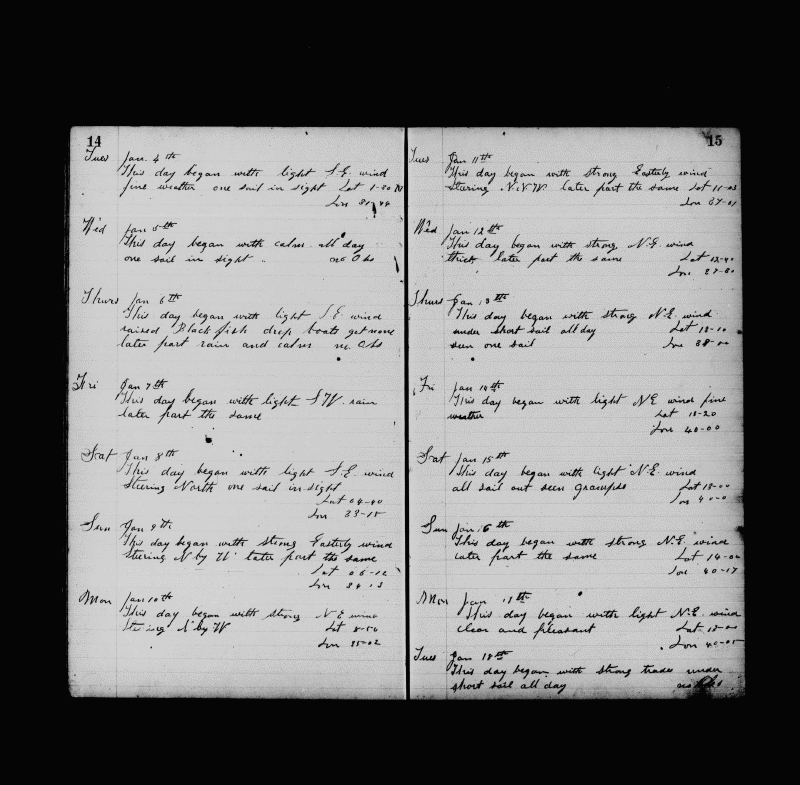 14
Tues Jan. 4th
This day began with light S.E. wind
fine weather one sail in sight Lat 1-30 N
Lon 31-44
Wed Jan 5th
This day began with calm all day
one sail in sight no Obs
Thurs Jan 6th
This day began with light S.E. wind
raised Blackfish drop boats get none
later part rain and calm no Obs
Fri Jan 7th
This day began with light S.W. rain
later part the same
Sat Jan 8th
This day began with light S.E. wind
steering North one sail in sight
Lat 04-40
Lon 33-15
Sun Jan 9th
This day began with strong Easterly wind
steering N by W later part the same
Lat 06-12
Lon 34-13
Mon Jan 10th
This day began with strong N E wind
steering N by W Lat 8-50
Lon 35-02
15
Tues Jan 11th
This day began with strong Easterly wind
steering N.N.W. later part the same Lat 11-03
Lon 37-01
Wed Jan 12th
This day began with strong N.E. wind
thick, later part the same Lat 12-40
Lon
Thurs Jan 13th
This day began with strong N.E. wind
under short sail all day Lat 13-10
seen one sail Lon 38-00
Fri Jan 14th
This day began with light N E wind fine
weather Lat 13-20
Lon 40-00
Sat Jan 15th
This day began with light N.E. wind
all sail out seen Grampus Lat 13-00
Lon 40-0
Sun Jan 16th
This day began with strong N.E. wind
later part the same Lat 14-00
Lon 40-17
Mon Jan 17th
This day began with light N.E. wind
clear and pleasant Lat 13-00
Lon 40-05
Tues Jan 18th
This day began with strong trades under
short sail all day no Obs